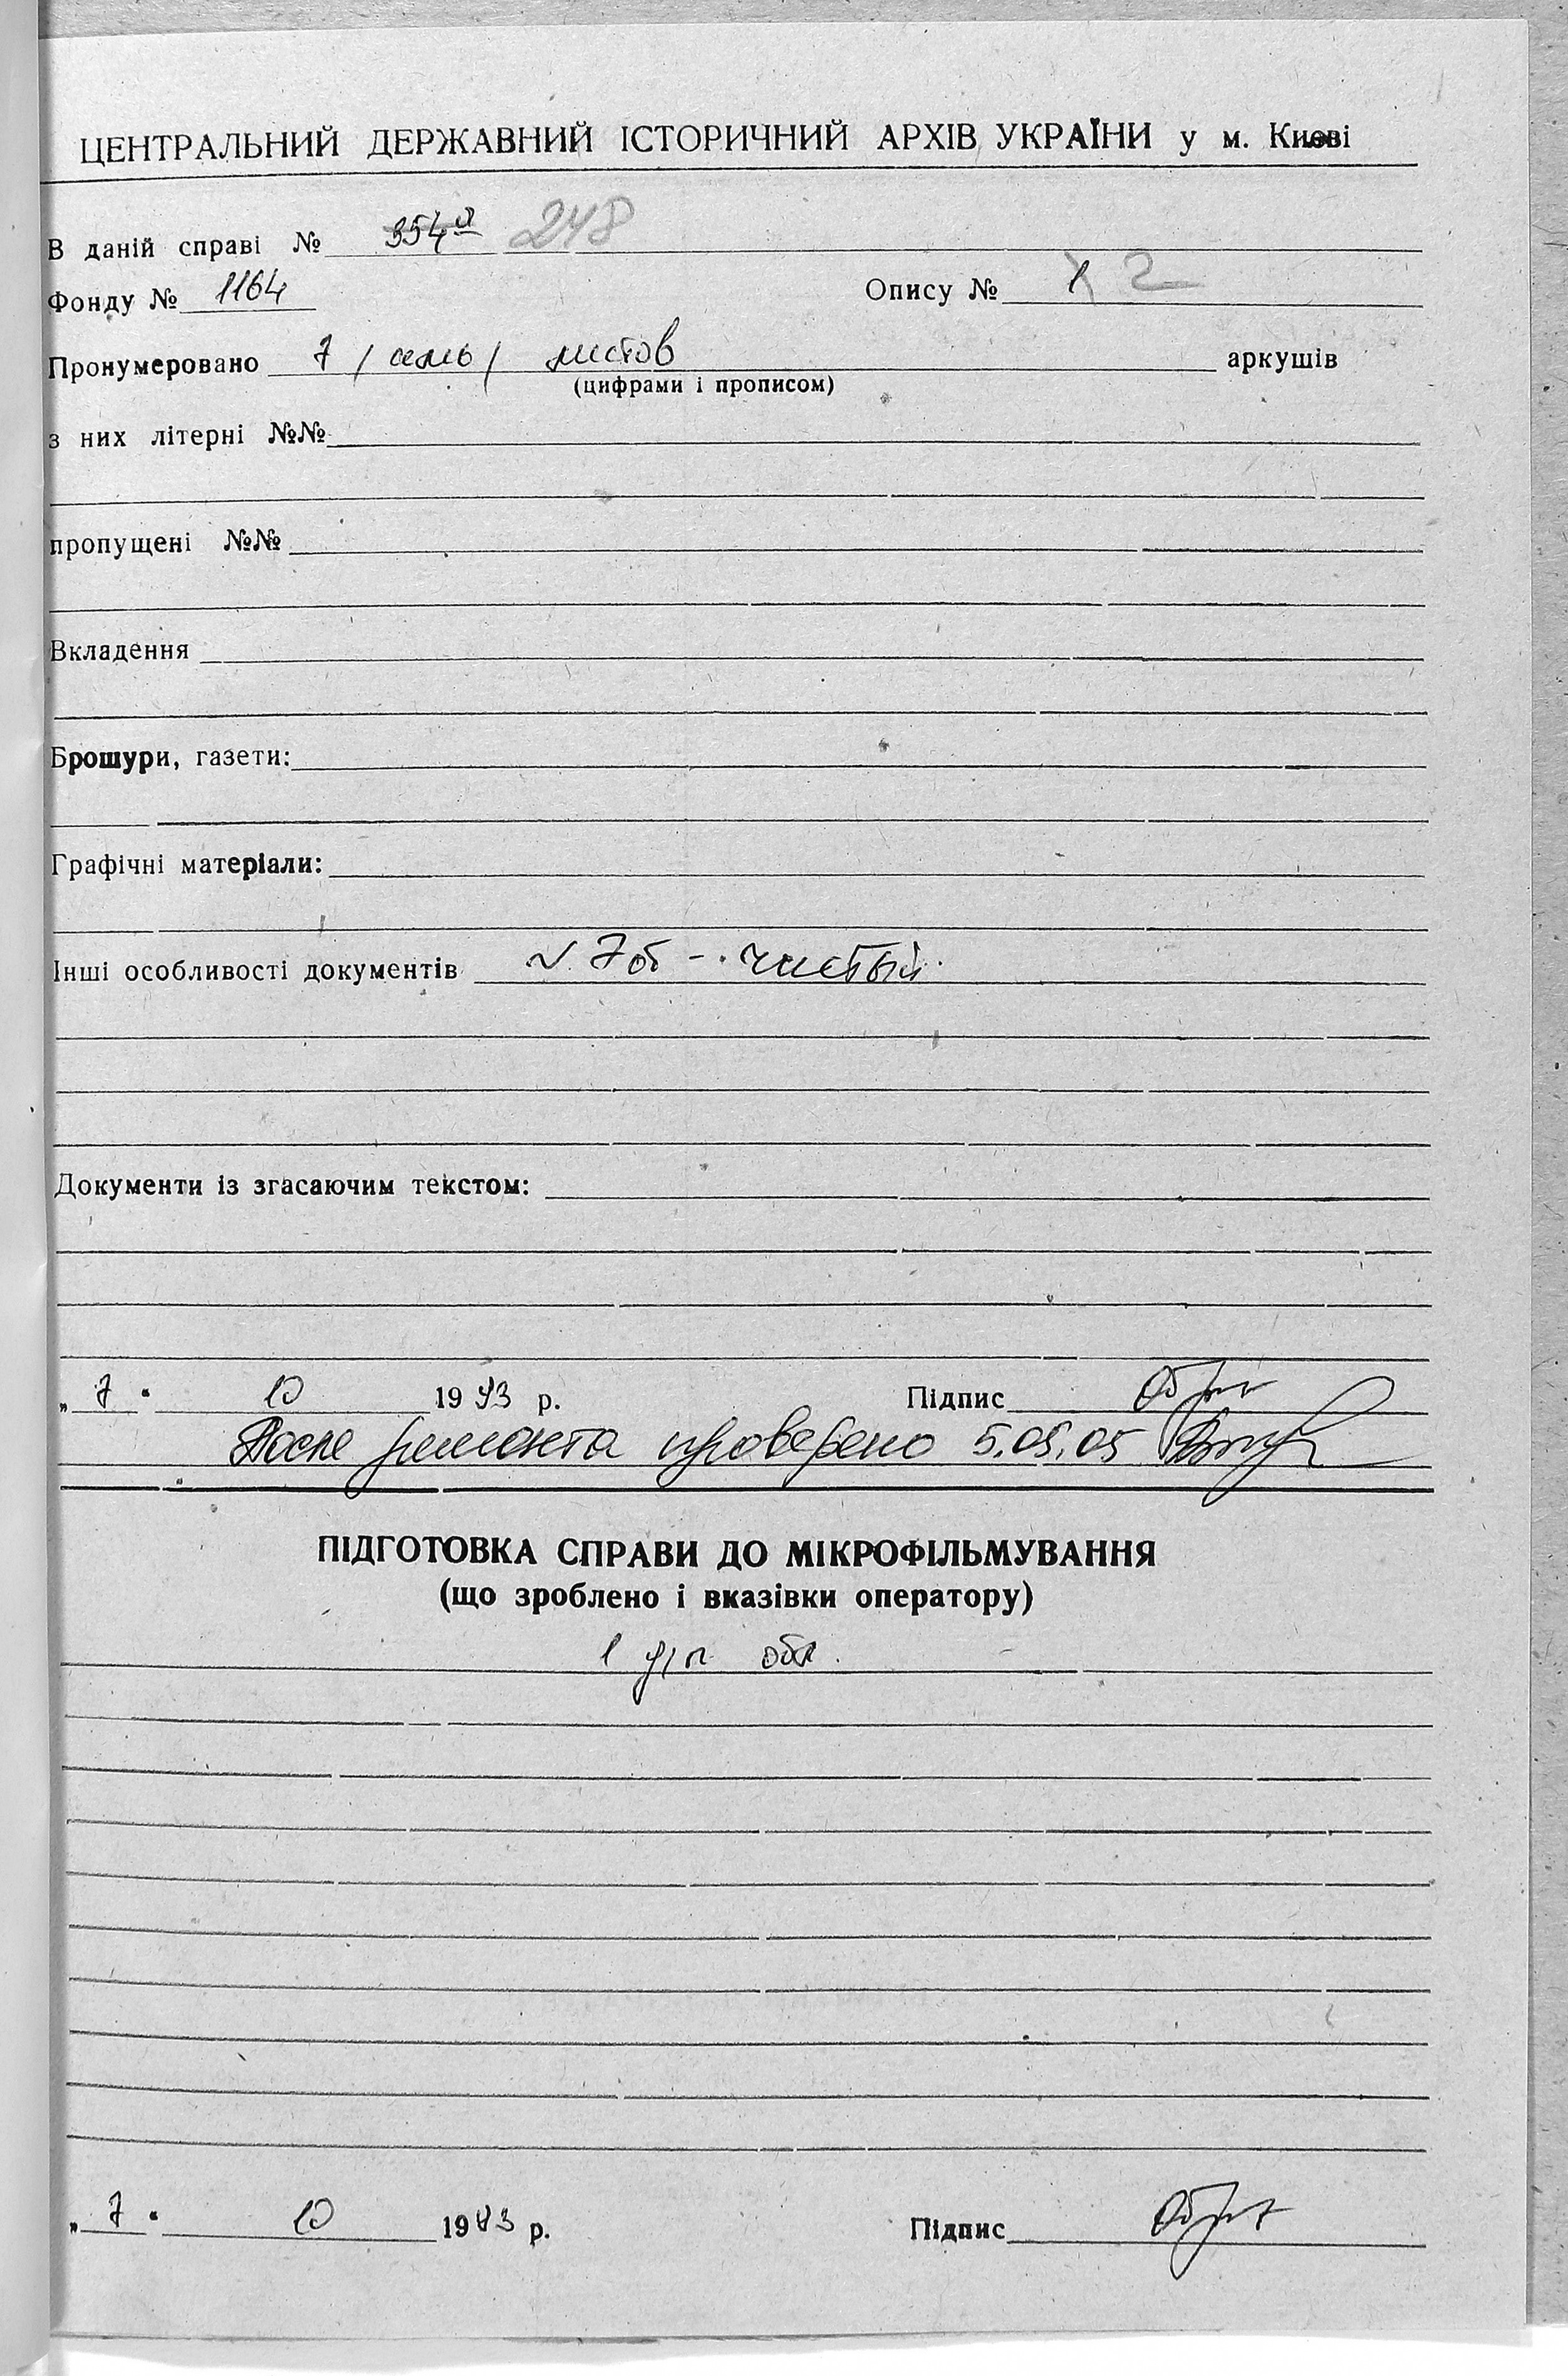 ЦЕНТРАЛЬНИЙ ДЕРЖАВНИЙ ІСТОРИЧНИЙ АРХІВ УКРАЇНИ у м. Києві
В даній справі № 354 248
Фонду № 1164 Опису № 1 2
Пронумеровано 7 / семь / листов аркушів
(цифрами і прописом)
з них літерні №№
пропущені №№
Вкладення
Брошури, газети:
Графічні матеріали:
Інші особливості документів 7об - чистый
Документи із згасаючим текстом:
„7" 10 1993 р. Підпис
После ремонта проверено 5.05.05
ПІДГОТОВКА СПРАВИ ДО МІКРОФІЛЬМУВАННЯ
(що зроблено і вказівки оператору)
1
„7" 10 1993 р. Підпис